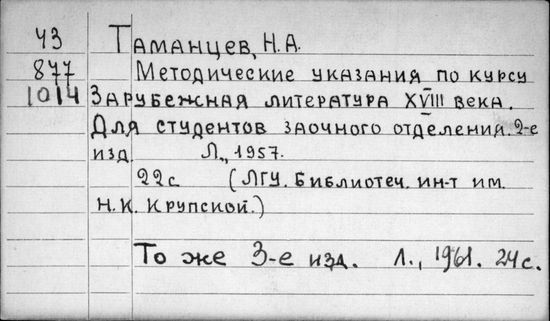 ЧЗ Таманцев, Н.А.
877 Методические указания по курсу
1014 Зарубежная литература XVIII века.
Для студентов заочного отделения. 2-е
изд. Л., 1957.
22 с (ЛГУ. Библиотеч. ин-т им.
Н.К. Крупской.)
То же 3-е изд. Л., 1961. 24 с.